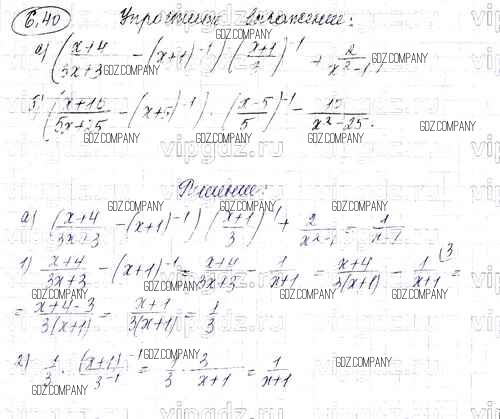 6.40 Упростите выражения:
а) (x+4/3x+3 - (x+1)^-1) · (x+1/3)^-1 + 2/x²-1;
б) (x+15/5x+25 - (x+5)^-1) · (x-5/5)^-1 - 10/x²-25.
Решение:
а) (x+4/3x+3 - (x+1)^-1) (x+1/3)^-1 + 2/x²-1 = 1/x-1
1) x+4/3x+3 - (x+1)^-1 = x+4/3x+3 - 1/x+1 = x+4/3(x+1) - 1/x+1 (3 =
= x+4-3/3(x+1) = x+1/3(x+1) = 1/3
2) 1/3 · (x+1)^-1/3^-1 = 1/3 · 3/x+1 = 1/x+1
GDZ.COMPANY
vipgdz.ru